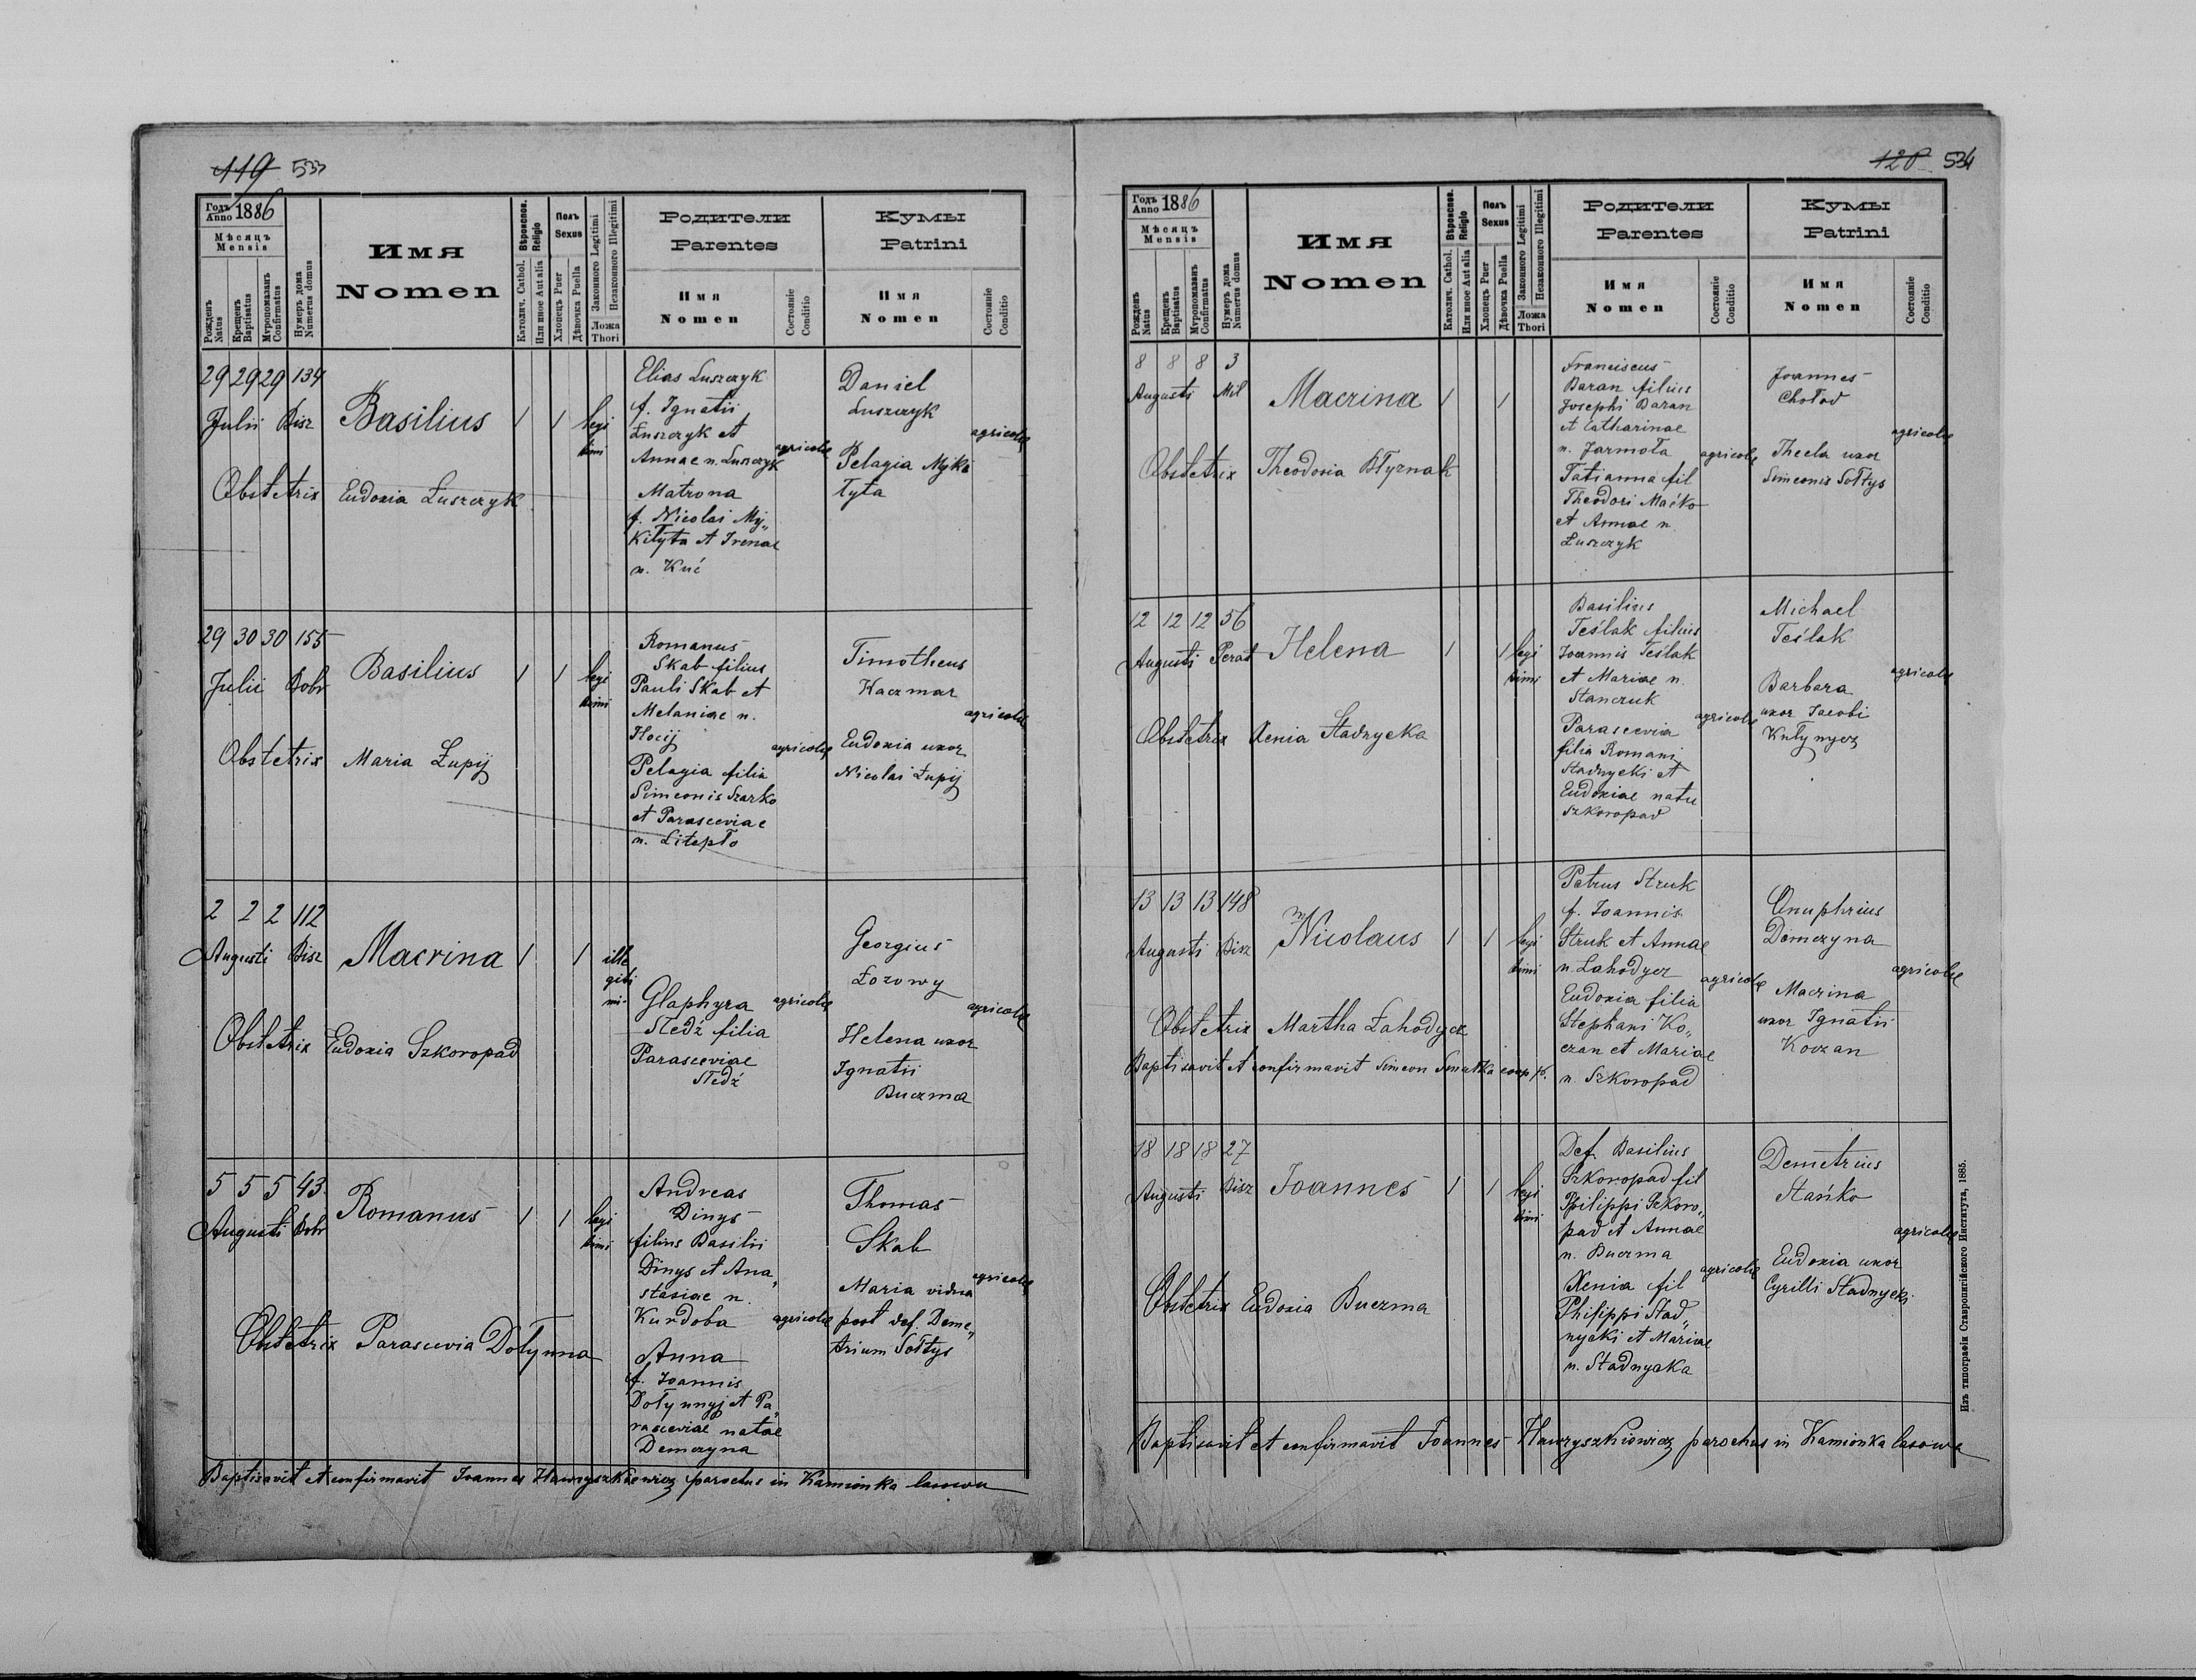 119 533
Годъ Anno 1886
Мѣсяцъ Mensis
Рожденъ Natus
Крещенъ Baptisatus
Мѵропомазанъ Confirmatus
Нумеръ дома Numerus domus
Имя Nomen
Вѣроиспов. Religio
Католич. Cathol.
Или иное Aut alia
Полъ Sexus
Хлопецъ Puer
Дѣвочка Puella
Законного Legitimi
Незаконного Illegitimi
Ложа Thori
Родители Parentes
Имя Nomen
Состояніе Conditio
Кумы Patrini
Имя Nomen
Состояніе Conditio
29 29 29 134
Julii Bisz
Basilius
1 1
legi
timi
Elias Łuszczyk
f. Ignatii
Łuszczyk et
Annae n. Łuszczyk
Matrona
f. Nicolai My„
kityta et Irenae
n. Kuć
agricolae
Daniel
Łuszczyk
Pelagia Myki
tyta
agricolae
Obstetrix Eudoxia Łuszczyk
29 30 30 155
Julii Dobr
Basilius
1 1
legi
timi
Romanus
Skab filius
Pauli Skab et
Melaniae n.
Hocij
Pelagia filia
Simeonis Szarko
et Parasceviae
n. Litepło
agricolae
Timotheus
Kaczmar
Eudoxia uxor
Nicolai Łupij
agricolae
Obstetrix Maria Łupij
2 2 2 112
Augusti Bisz
Macrina
1 1
ille
giti
mi
Glaphyra
Sledź filia
Parasceviae
Sledź
agricolae
Georgius
Łozowy
Helena uxor
Ignatii
Buczma
agricolae
Obstetrix Eudoxia Szkoropad
5 5 5 43
Augusti Dobr
Romanus
1 1
legi
timi
Andreas
Dinys
filius Basilii
Dinys et Ana„
stasiae n.
Kurdoba
Anna
f. Joannis
Dołynnyj et Pa„
rasceviae natae
Demczyna
agricolae
Thomas
Skab
Maria vidua
post def. Deme„
trium Sołtys
agricolae
Obstetrix Parascevia Dołynna
Baptisavit et confirmavit Joannes Hawryszkiewicz parochus in Kamionka lasowa
120 534
Годъ Anno 1886
Мѣсяцъ Mensis
Рожденъ Natus
Крещенъ Baptisatus
Мѵропомазанъ Confirmatus
Нумеръ дома Numerus domus
Имя Nomen
Вѣроиспов. Religio
Католич. Cathol.
Или иное Aut alia
Полъ Sexus
Хлопецъ Puer
Дѣвочка Puella
Законного Legitimi
Незаконного Illegitimi
Ложа Thori
Родители Parentes
Имя Nomen
Состояніе Conditio
Кумы Patrini
Имя Nomen
Состояніе Conditio
8 8 8 3
Augusti Mil
Macrina
1 1
Franciscus
Baran filius
Josephi Baran
et Catharinae
n. Jarmoła
Tatianna fil
Theodori Maćko
et Annae n.
Łuszczyk
agricolae
Joannes
Chołod
Thecla uxor
Simeonis Sołtys
agricolae
Obstetrix Theodosia Błyznak
12 12 12 56
Augusti Perat
Helena
1 1
legi
timi
Basilius
Teślak filius
Joannis Teślak
et Mariae n.
Stanczuk
Parascevia
filia Romani
Stadnycki et
Eudoxiae natae
Szkoropad
agricolae
Michael
Teślak
Barbara
uxor Jacobi
Kułynycz
agricolae
Obstetrix Xenia Stadnycka
13 13 13 148
Augusti Bisz
Nicolaus
1 1
legi
timi
Petrus Struk
f. Joannis
Struk et Annae
n. Lahodycz
Eudoxia filia
Stephani Ko„
czan et Mariae
n. Szkoropad
agricolae
Onuphrius
Demczyna
Macrina
uxor Ignatii
Koczan
agricolae
Obstetrix Martha Łahodycz
Baptisavit et confirmavit Simeon Smulka coop p.
18 18 18 27
Augusti Bisz
Joannes
1 1
legi
timi
Def Basilius
Szkoropad fil
Philippi Szkoro„
pad et Annae
n. Buczma
Xenia fil
Philippi Stad„
nycki et Mariae
n. Stadnycka
agricolae
Demetrius
Stańko
Eudoxia uxor
Cyrilli Stadnycki
agricolae
Obstetrix Eudoxia Buczma
Baptisavit et confirmavit Joannes Hawryszkiewicz parochus in Kamionka lasowa
Изъ типографіи Ставропигійского Института, 1885.